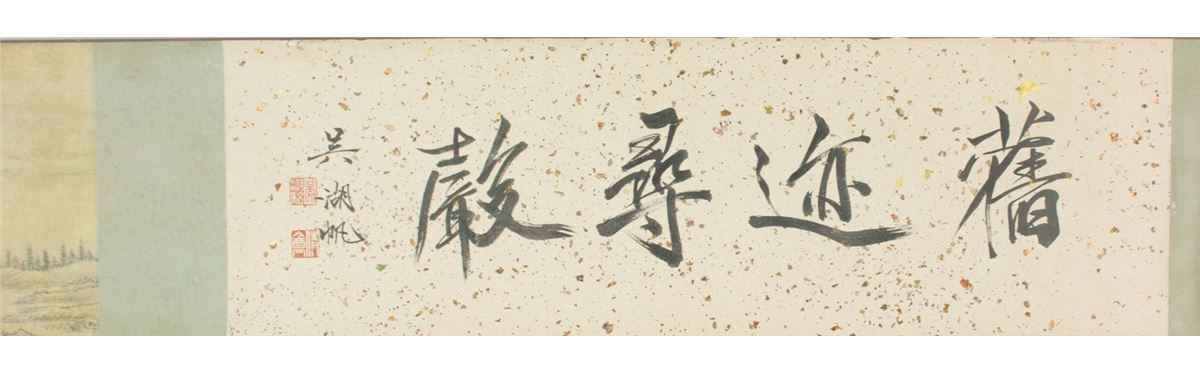 舊迹尋聲
吳湖帆